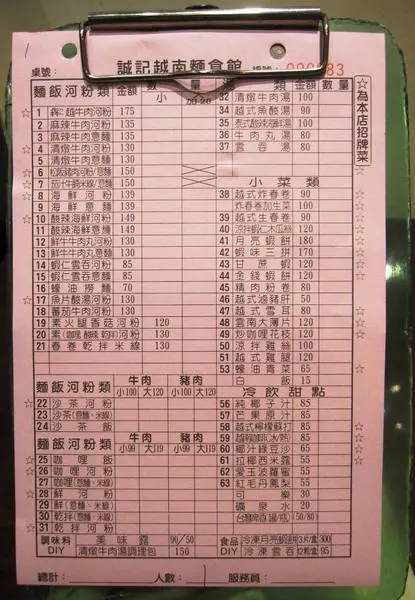 誠記越南麵食館
桌號：
麵飯河粉類 金額 數量
小
☆為本店招牌菜☆
1 越牛肉河粉 175
2 麻辣牛肉河粉 135
3 麻辣牛肉意麵 135
4 清燉牛肉河粉 130
5 清燉牛肉意麵 130
6 150
7 150
8 海鮮河粉 139
9 海鮮意麵 139
10 酸辣海鮮河粉 149
11 酸辣海鮮意麵 149
12 鮮牛牛肉丸河粉 130
13 鮮牛牛肉丸意麵 130
14 蝦仁雲吞河粉 85
15 蝦仁雲吞意麵 85
16 蠔油撈麵 70
17 魚片酸湯河粉 130
18 蕃茄牛肉河粉 130
19 素火腿香菇河粉 120
20 素(咖哩.酸辣.乾拌)河粉 130
21 春卷乾拌米線 130
麵飯河粉類 牛肉 豬肉
小100 大120 小100 大120
22 沙茶河粉
23 沙茶(意麵、米線)
24 沙茶飯
麵飯河粉類 牛肉 豬肉
小99 大119 小99 大119
25 咖哩飯
26 咖哩河粉
27 咖哩(意麵、米線)
28 鮮河粉
29 鮮(意麵、米線)
30 乾拌(意麵、米線)
31 乾拌河粉
調味料 美味露 90/50
DIY 清燉牛肉湯調理包 150
32 清燉牛肉湯 100
34 越式魚酸湯 90
35 泰式酸辣海鮮湯 100
36 牛肉丸湯 80
37 雲吞湯 70
小菜類
38 越式炸春卷 90
炸春卷加生菜 100
39 越式生春卷 90
40 涼拌蝦仁木瓜絲 120
41 月亮蝦餅 180
42 蝦味三拼 170
43 甘蔗蝦 120
44 金錢蝦餅 120
45 精肉粉卷 80
46 越式滷豬肝 50
47 越式雪耳 80
48 雲南大薄片 120
49 炒咖哩花枝 120
50 涼拌雞絲 100
51 越式雞腿 120
53 蠔油青菜 65
白飯 15
冷飲甜點
56 純椰子汁 85
57 芒果原汁 85
58 越式檸檬蘇打 85
59 越賴咖啡(冰/熱) 85
60 椰汁綠豆沙 65
61 拉椰西米露 55
62 愛玉菠蘿蜜 55
63 紅毛丹鳳梨 55
可樂 30
礦泉水 20
(50/80)
食品 冷凍月亮蝦餅 3片/盒 300
DIY 冷凍雲吞 12粒/盒 95
總計： 人數： 服務員：